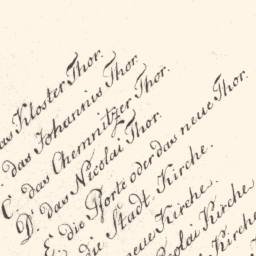 das Kloster Thor.
das Johannis Thor.
C. das Chemnitzer Thor.
D. das Nicolai Thor.
E. die Pforte oder das neue Thor.
die Stadt Kirche.
neue Kirche.
Nicolai Kirche
Kirche